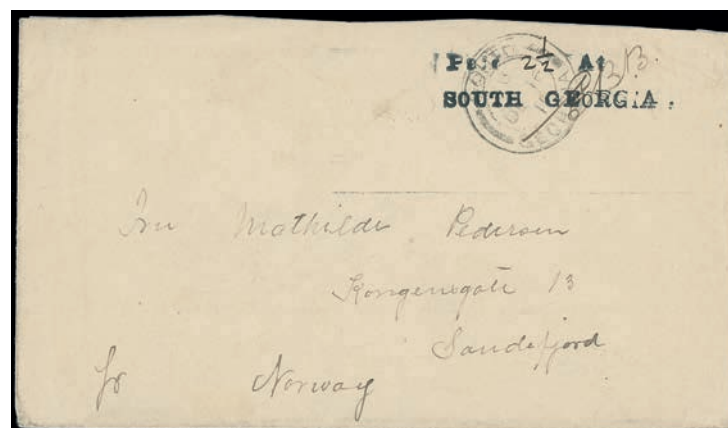 Paid 2½ At
SOUTH GEORGIA.
SOUTH GEORGIA
Fru Mathilde Pedersen
Kongensgate 13
Sandefjord
Norway